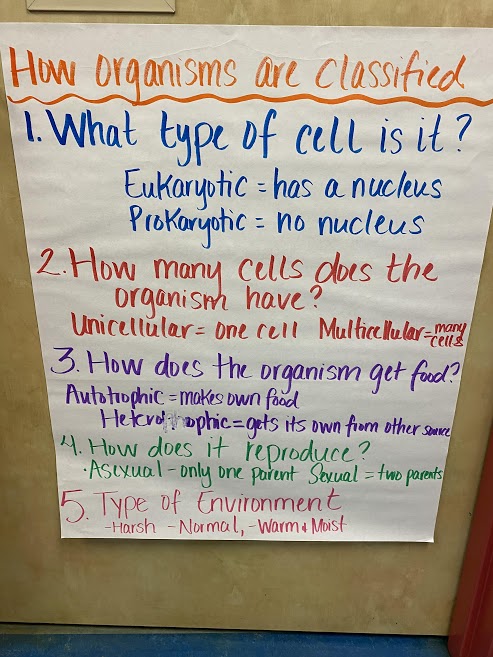 How organisms are classified
1. What type of cell is it?
Eukaryotic = has a nucleus
Prokaryotic = no nucleus
2. How many cells does the
organism have?
Unicellular = one cell Multicellular = many cells
3. How does the organism get food?
Autotrophic = makes own food
Heterotrophic = gets its own from other source
4. How does it reproduce?
· Asexual - only one parent Sexual = two parents
5. Type of Environment
- Harsh - Normal, - Warm & Moist